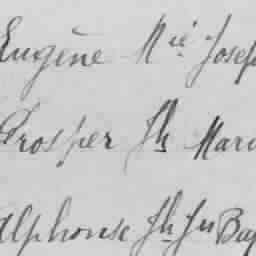 Eugène Mie Josep
Prosper Jh Mari
Alphonse Jh Jn Bap